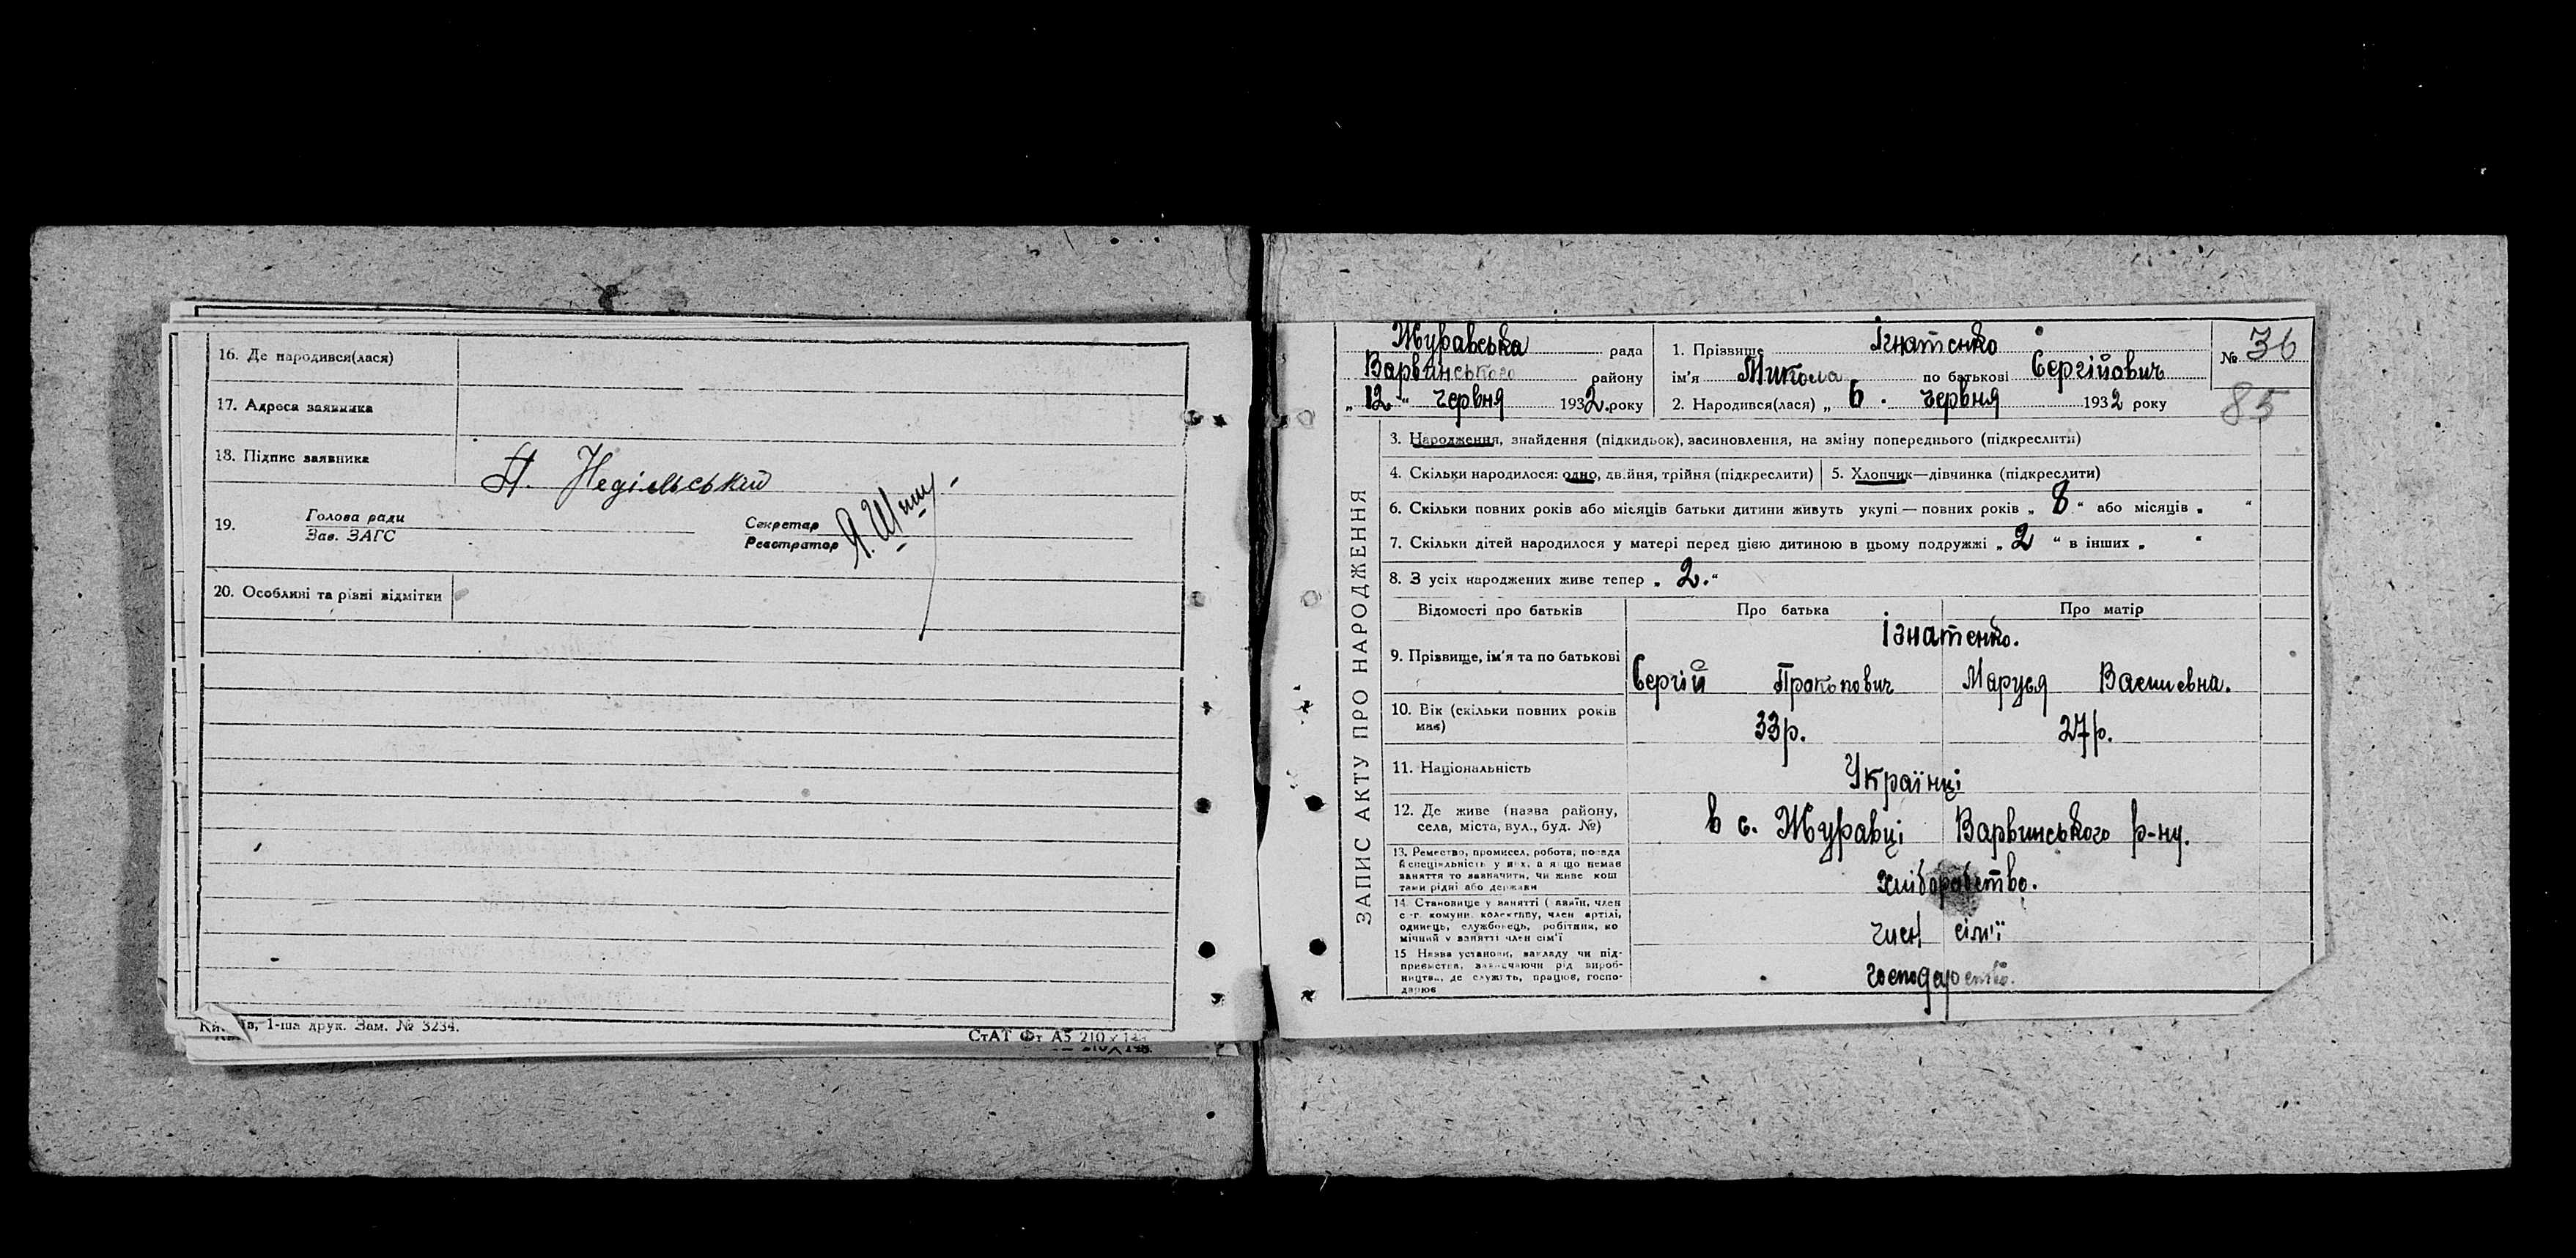 16. Де народився(лася)
17. Адреса заявника
18. Підпис заявника
Недільський
19. Голова ради
Зав. ЗАГС
Секретар
Реєстратор
20. Особливі та різні відмітки
1-ша друк. Зам. № 3234.
СтАТ Фт А5 210
Журавська рада
Варвинського району
„12“ червня 1932 року
1. Прізвище Ігнатенко
ім'я Микола по батькові Сергійович
№ 36
2. Народився(лася) „6. червня 1932 року
85
ЗАПИС АКТУ ПРО НАРОДЖЕННЯ
3. Народження, знайдення (підкидьок), засиновлення, на зміну попереднього (підкреслити)
4. Скільки народилося: одно, двійня, трійня (підкреслити)
5. Хлопчик—дівчинка (підкреслити)
6. Скільки повних років або місяців батьки дитини живуть укупі — повних років „8“ або місяців „ “
7. Скільки дітей народилося у матері перед цією дитиною в цьому подружжі „2“ в інших „ “
8. З усіх народжених живе тепер „2.“
Відомості про батьків
Про батька
Про матір
9. Прізвище, ім'я та по батькові
Ігнатенко.
Сергій Прокопович
Маруся Василевна.
10. Вік (скільки повних років має)
33р.
27р.
11. Національність
Українці
12. Де живе (назва району, села, міста, вул., буд. №)
в с. Журавці Варвинського р-ну.
13. Ремество, промисел, робота, посада й спеціяльність у них, а якщо немає заняття то зазначити, чи живе коштами рідні або держави
хліборобство.
14. Становище у занятті (хазяїн, член с.-г. комуни, колективу, член артілі, одинець, службовець, робітник, помічний у занятті член сім'ї
член сім'ї
15 Назва установи, закладу чи підприємства, зазначаючи рід виробництва, де служить, працює, господарює
господарство.